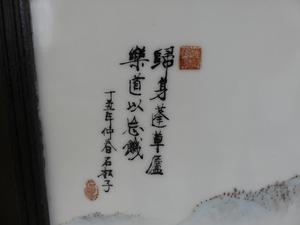 歸身蓬草廬
樂道以忘饑
丁丑年仲春石松子